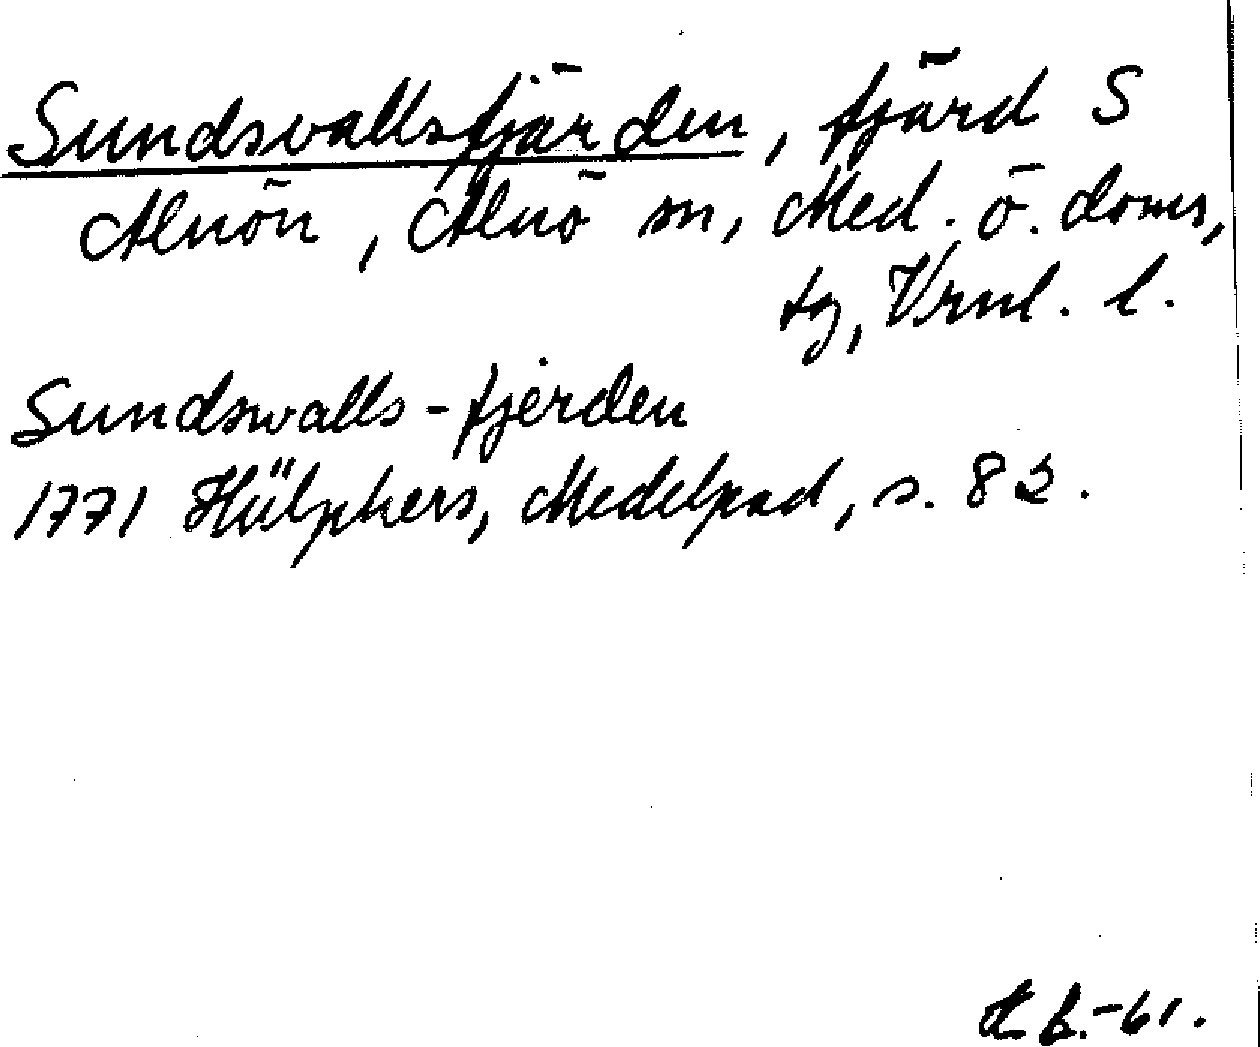 Sundsvallsfjärden, fjärd S
Alnön, Alnö sn, Med. ö. doms,
tg, Vrnl. l.
Sundswalls-fjerden
1771 Hülphers, Medelpad, s. 82.
H B.-61.